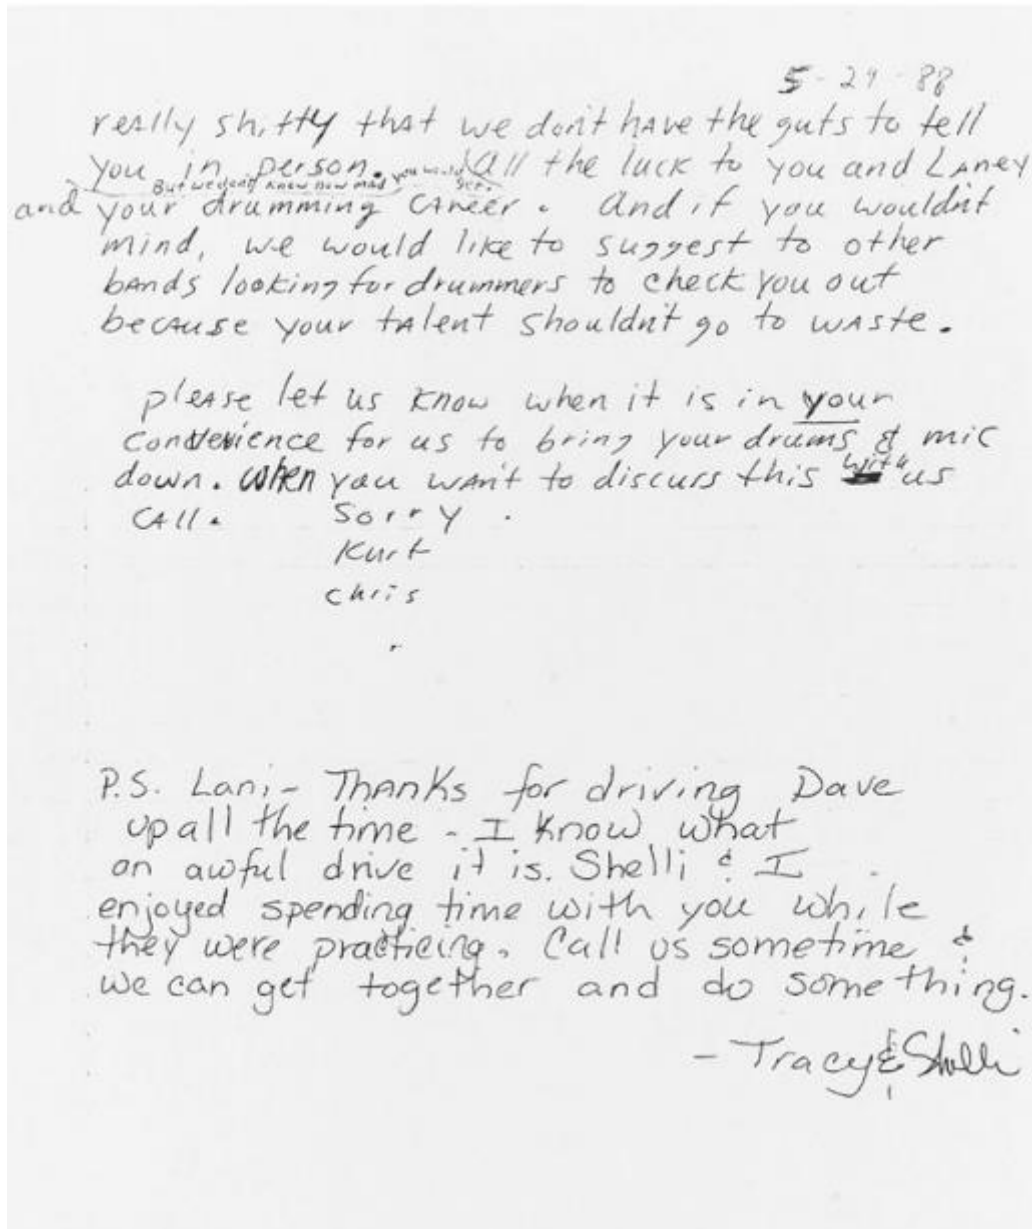 5-29-88
really shitty that we don't have the guts to tell
you in person. All the luck to you and Laney
But we don't know how mad you would get.
and your drumming career. And if you wouldn't
mind, we would like to suggest to other
bands looking for drummers to check you out
because your talent shouldn't go to waste.
please let us know when it is in your
convenience for us to bring your drums & mic
down. When you wan't to discuss this with us
call. Sorry.
Kurt
Chris
P.S. Lani- Thanks for driving Dave
up all the time - I know what
an awful drive it is. Shelli & I
enjoyed spending time with you while
they were practicing. Call us sometime &
we can get together and do something.
- Tracy & Shelli